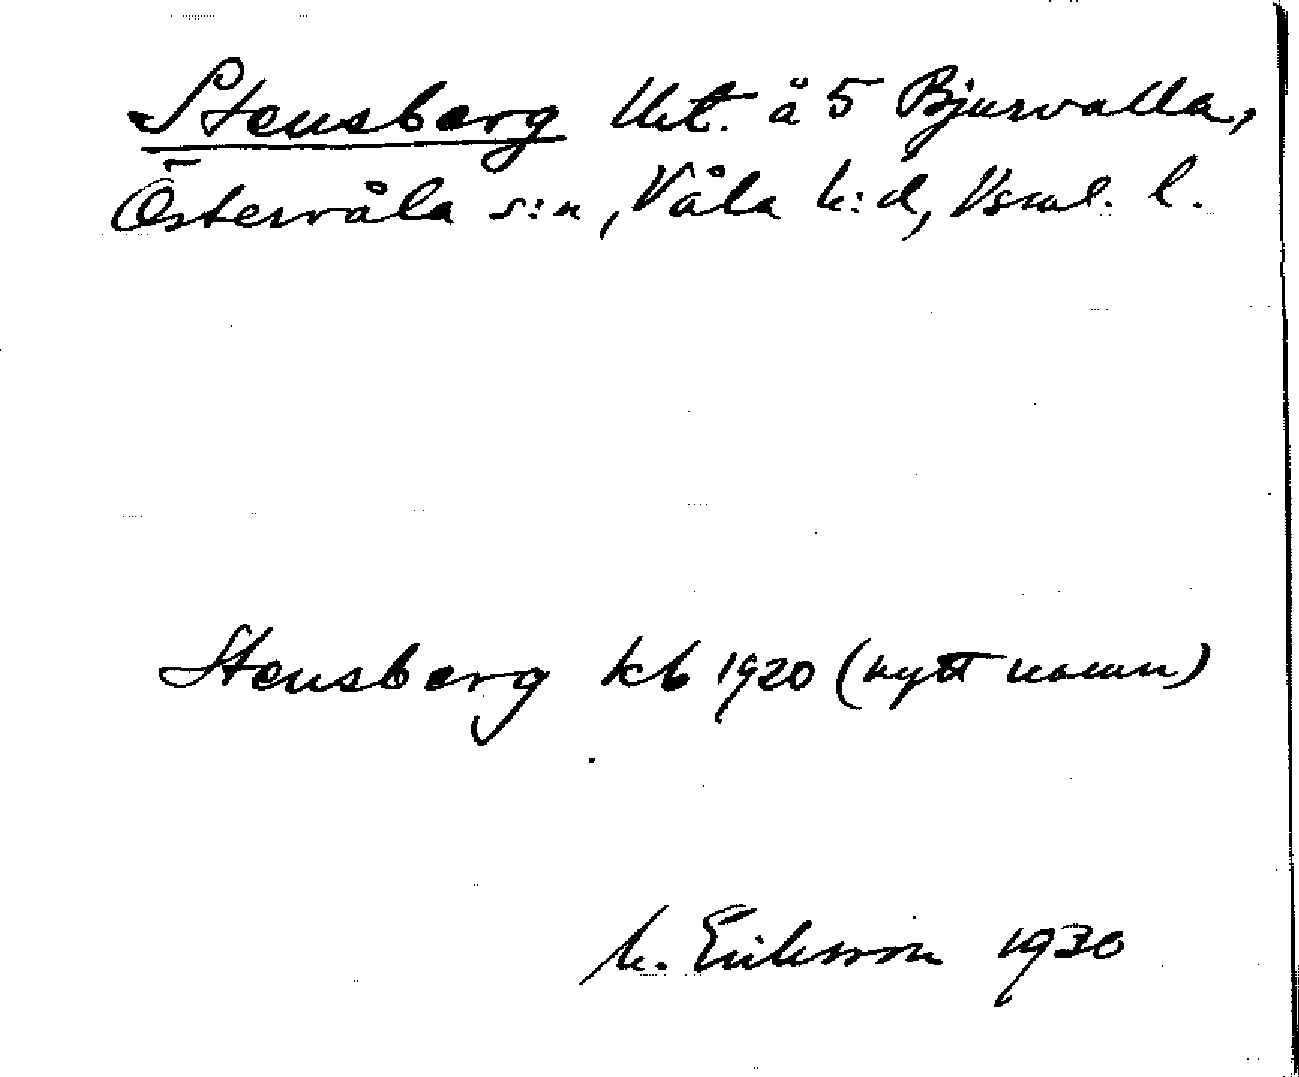 Stensberg Utt. å 5 Bjurvalla,
Östervåla s:n, Våla h:d, Vsml. l.
Stensberg kb 1920 (nytt namn)
M. Eriksson 1930